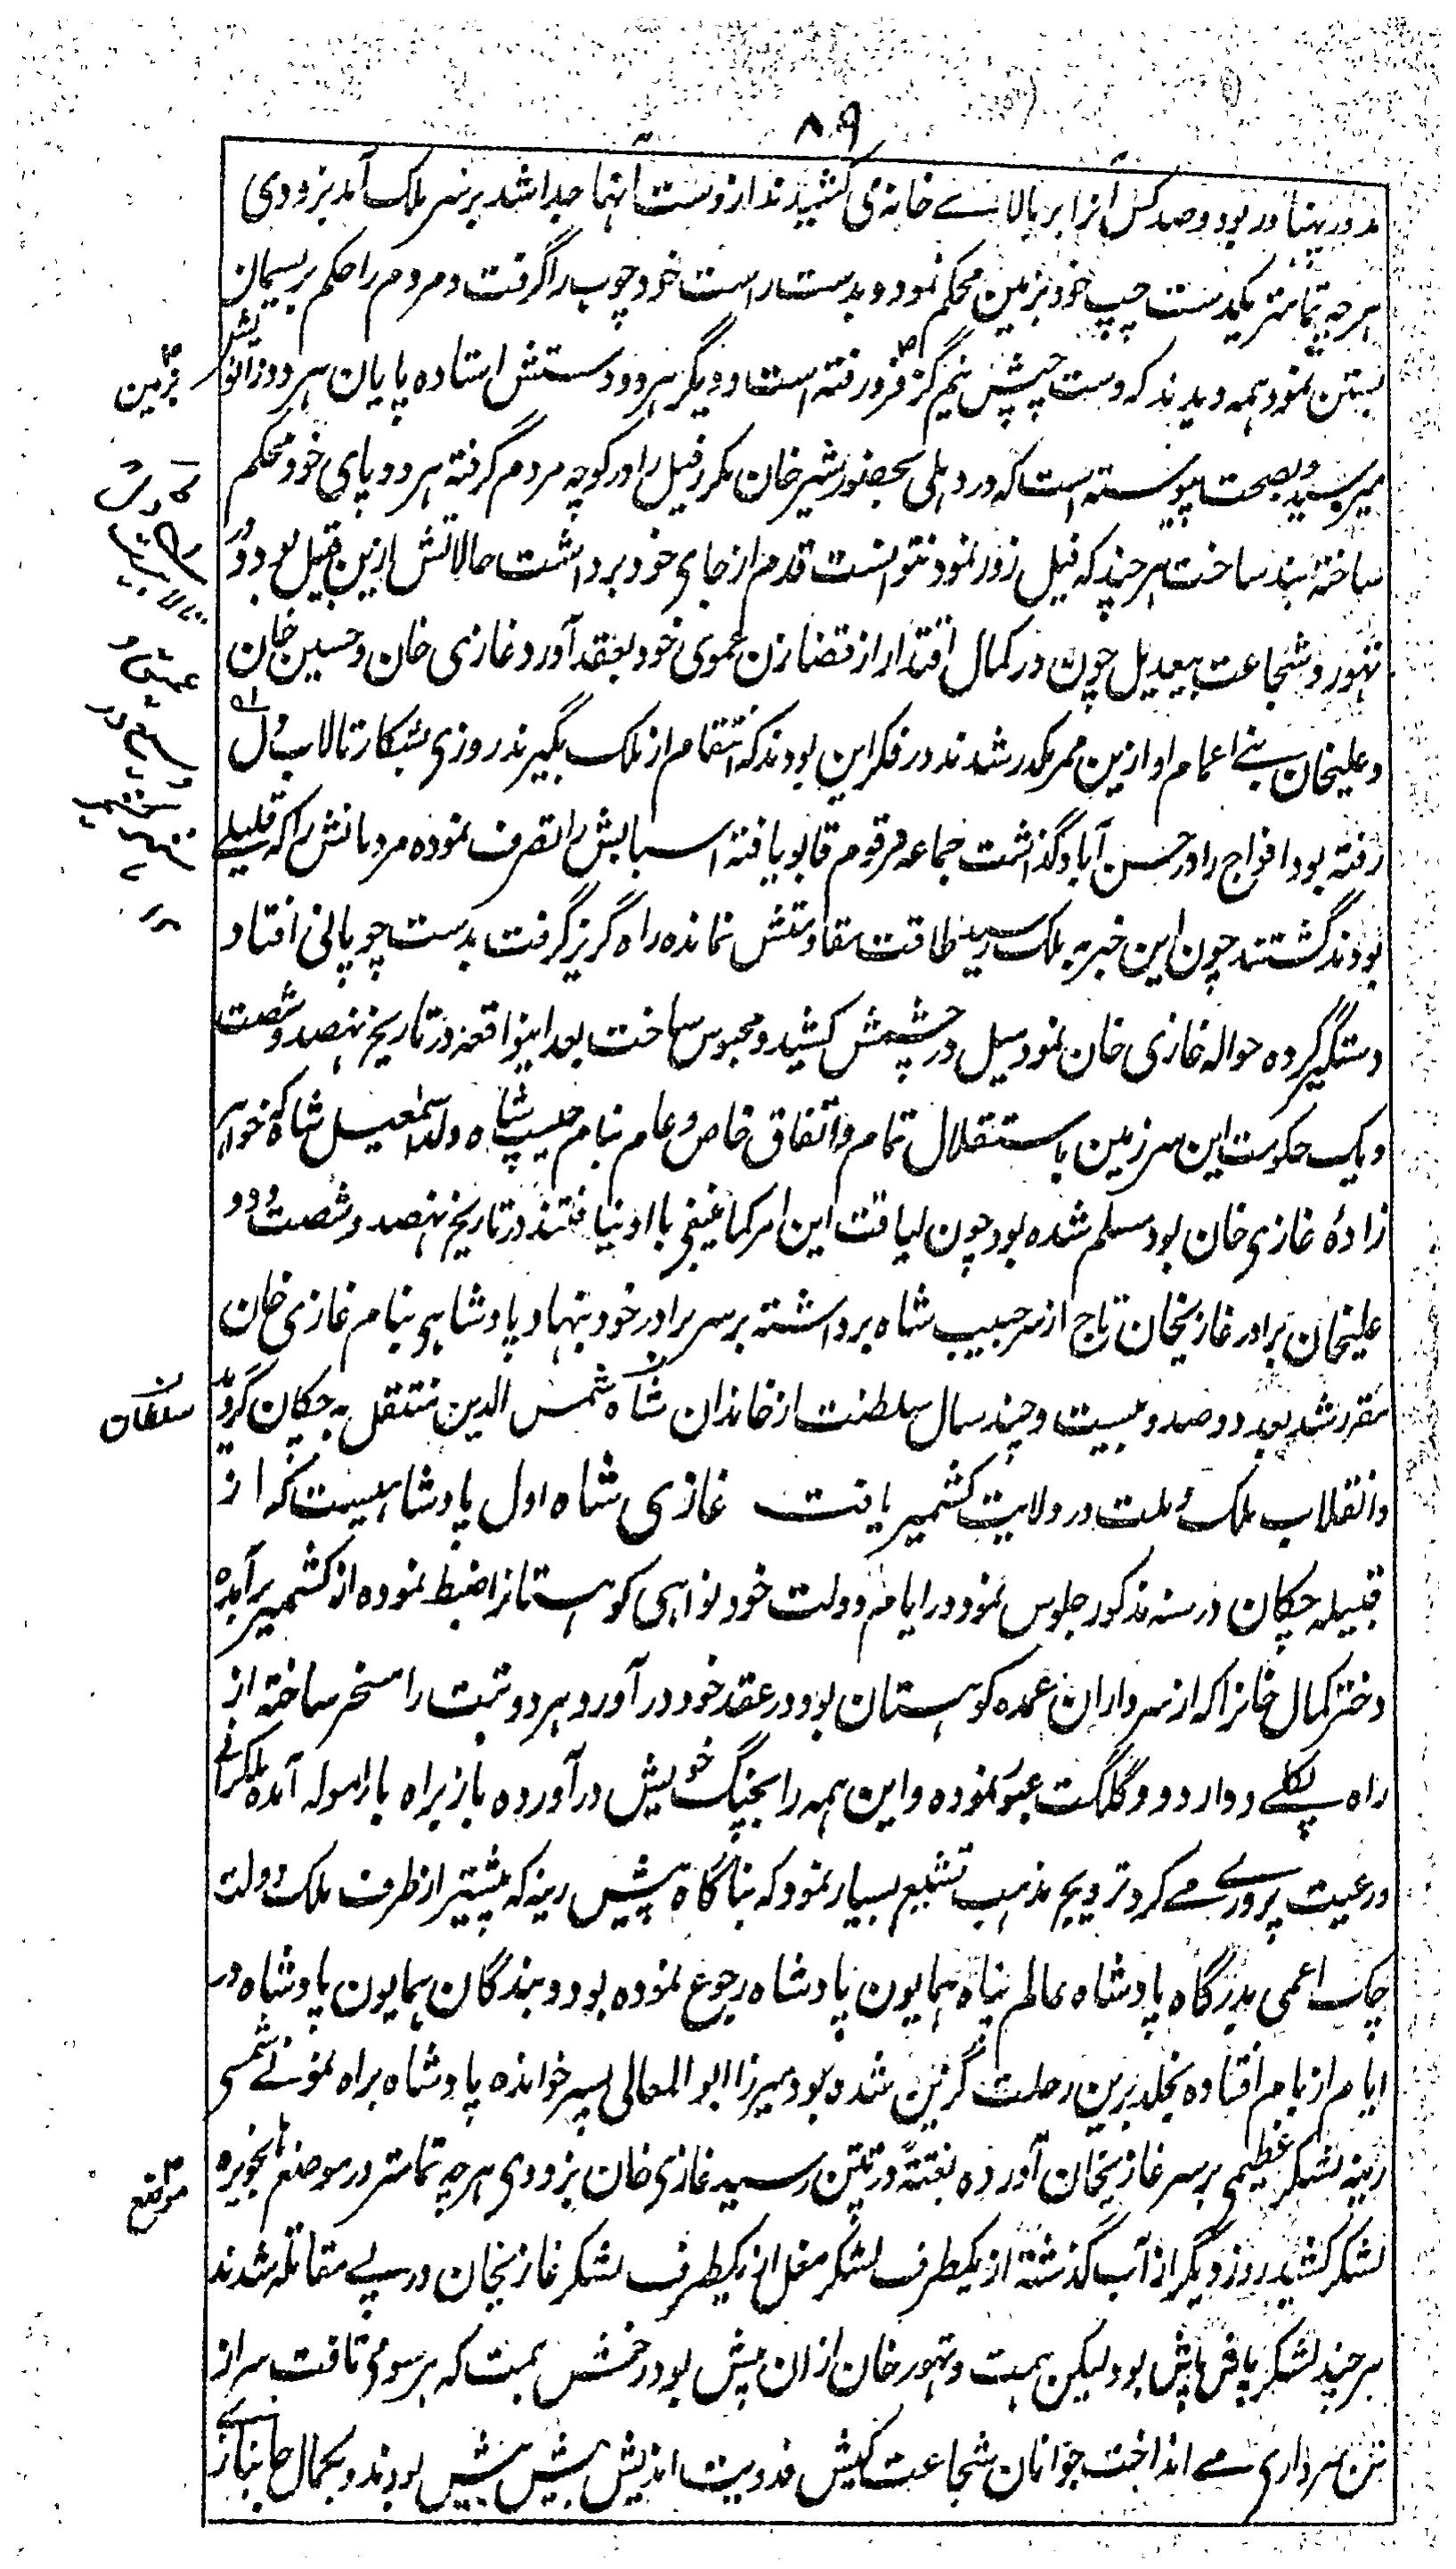 ۸۹
مدور پهناور بود دو صد کس آنرا بر بالاے خانه می کشیدند از دست آنها جدا شد بر سر ملک آمد بزودی
هر چه تمامتر یکدست چپ خود بزمین محکم نمود و بدست راست خود چوب را گرفت و مردم را حکم بریسمان
بستن نمود همه دیدند که دست چپش نیم گز فرو رفته است و دیگر هر دو دستش استاده پایان هر دو زانوش
میرسید و بصحت پیوسته است که در دهلی بحضور شیر خان مکرر فیل را در کوچه مردم گرفته هر دو پای خود محکم
ساخته بند ساخت هر چند که فیل زور نمود نتوانست قدم از جای خود برداشت حالاتش ازین قبیل بود و در
تهور و شجاعت بیعدیل چون در کمال اقتدار از قضا زن عموی خود بعقد آورد غازی خان و حسین خان
و علیخان بنے اعمام او ازین ممر مکدر شدند در فکر این بودند که انتقام از ملک بگیرند روزی بشکار تالاب ڈل
رفته بود افواج را در حسن آباد گذاشت جماعه مرقوم قابو یافته اسبابش را تصرف نموده مردمانش را که قلیلے
بودند گشتند چون این خبر به ملک رسید طاقت مقاومتش نمانده راه گریز گرفت بدست چوپانی افتاد
دستگیر کرده حواله غازی خان نمود میل در چشمش کشید و محبوس ساخت بعد اینواقعه در تاریخ نهصد و شصت
و یک حکومت این سرزمین باستقلال تمام و اتفاق خاص و عام بنام حبیب شاه ولد اسمٰعیل شاه که خواهر
زادهٔ غازی خان بود مسلم شده بود چون لیاقت این امر کما ینبغی با او نیافتند در تاریخ نهصد و شصت و دو
علیخان برادر غازیخان تاج از سر حبیب شاه برداشته بر سر برادر خود بنهاد و پادشاهی بنام غازی خان
مقرر شد بعد دو صد و بیست و چند سال سلطنت از خاندان شاه شمس الدین منتقل به چکان گردید
و انقلاب ملک و ملت در ولایت کشمیر یافت غازی شاه اول پادشاهیست که از
قبیله چکان در سنه مذکور جلوس نمود در ایام دولت خود نواحی کوهستانرا ضبط نموده از کشمیر برآمده
دختر کمال خانرا که از سرداران عمده کوهستان بود در عقد خود در آورد و هر دو تبت را مسخر ساخته از
راه پکلے و دارد و و گلگت عبور نموده و این همه را بچنگ خویش درآورده باز براه بارامولہ آمده ملکرانے
و رعیت پرورے مے کرد ترویج مذهب تشیع بسیار نمود که بناگاه شمس رینه که پیشتر از طرف ملک دولت
چک اعمی بدرگاه پادشاه عالم پناه همایون پادشاه رجوع نموده بود و بندگان همایون پادشاه در
ایام از بام افتاده بخلد برین رحلت گزین شده بود میرزا ابو المعالی پسر خوانده پادشاه براه نمونے شمس
رینه لشکر عظیمی بر سر غازیخان آورده بغتةً در پتن رسید غازی خان بزودی هر چه تمامتر در موضع هانجویره
لشکر کشید روز دیگر از آب گذشته از یکطرف لشکر مغل از یکطرف لشکر غازیخان درپے مقاتله شدند
هر چند لشکر پا فرا پیش بود لیکن همت و تهور خان ازان بیش بود رخش همت که هر سو می تافت سر از
تن سرداری مے انداخت جوانان شجاعت کیش فدویت اندیش پیش پیش بودند و بکمال جانبازے
بزمین
سلطان
موضع